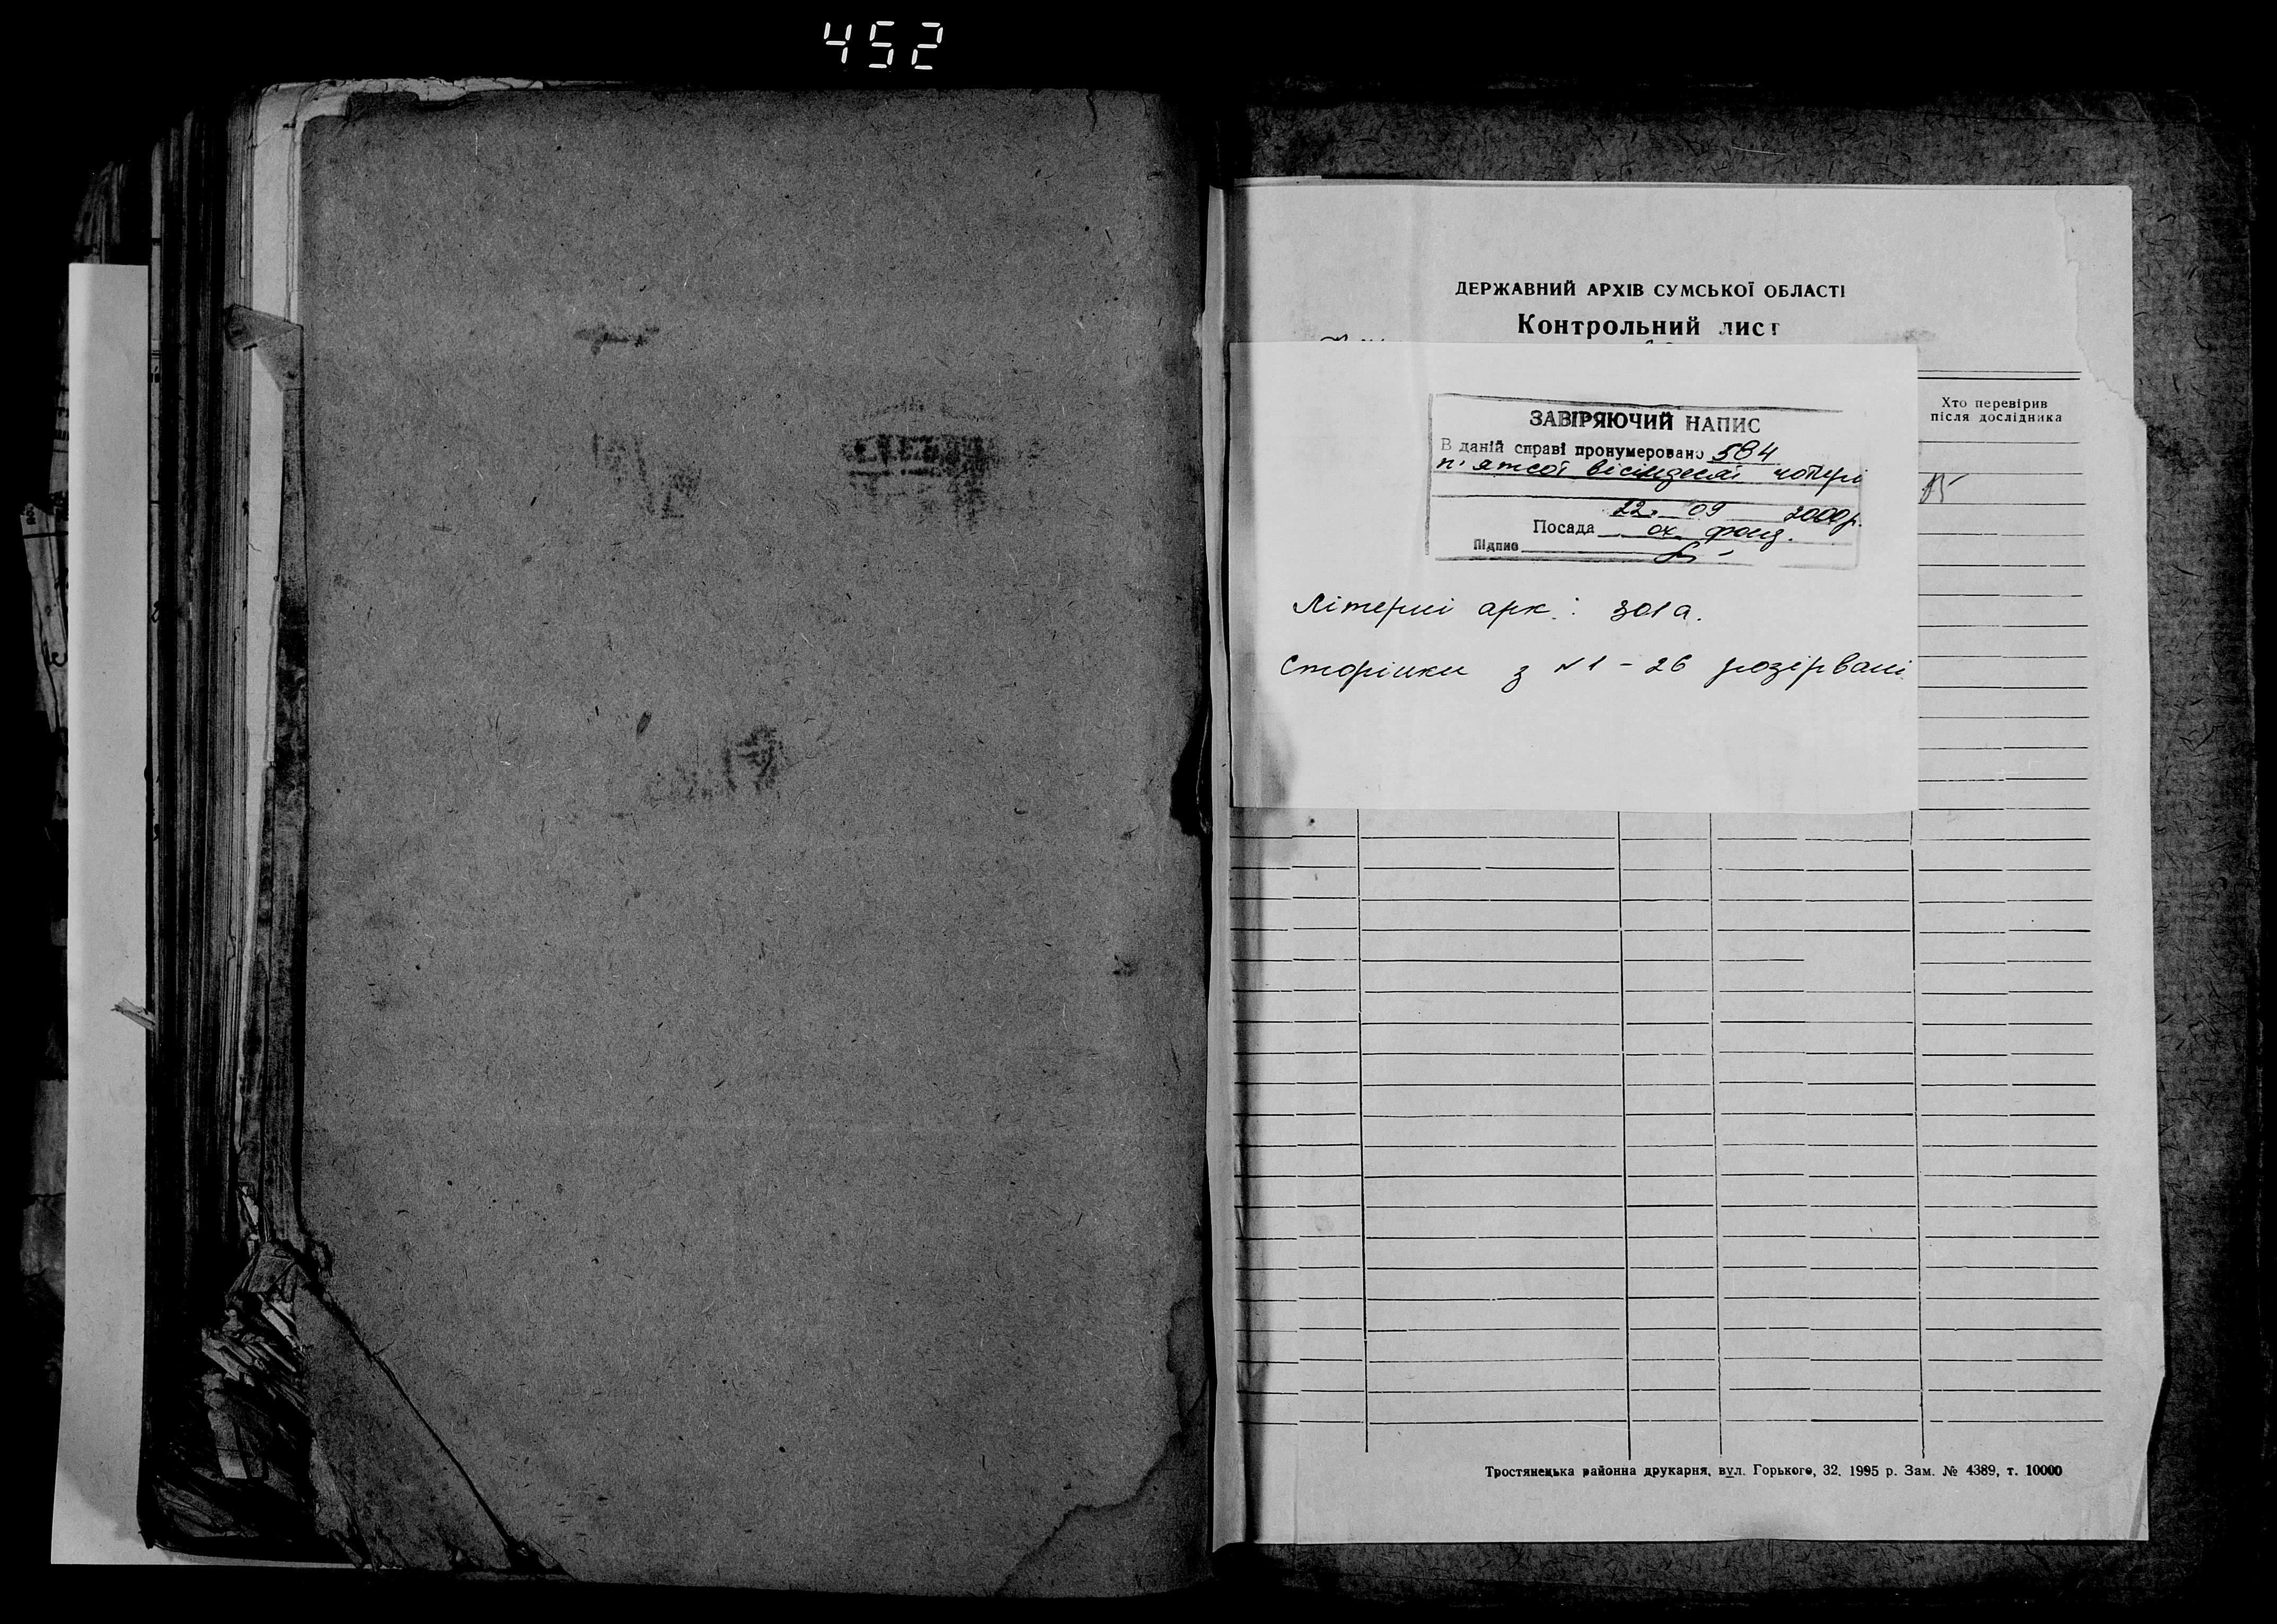 452
ДЕРЖАВНИЙ АРХІВ СУМСЬКОЇ ОБЛАСТІ
Контрольний лист
Хто перевірив
після дослідника
ЗАВІРЯЮЧИЙ НАПИС
В даній справі пронумеровано 584
п'ятсот вісімдесят чотири
22. 09 2000 р.
Посада ох. фонд.
Підпис
Літерні арк.: 301а.
Сторінки з №1 - 26 розірвані
Тростянецька районна друкарня, вул. Горького, 32, 1995 р. Зам. № 4389, т. 10000